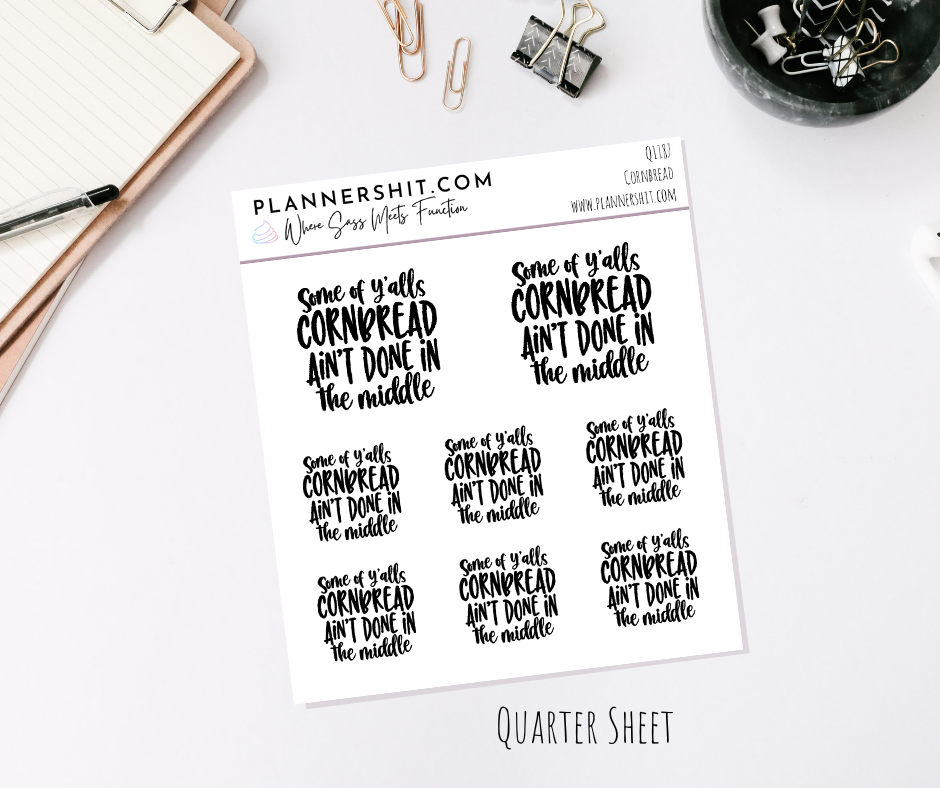 PLANNERSHIT.COM
Where Sass Meets Function
Q1187
Cornbread
www.plannershit.com
Some of y'alls
CORNBREAD
AIN'T DONE IN
the middle
Some of y'alls
CORNBREAD
AIN'T DONE IN
the middle
Some of y'alls
CORNBREAD
AIN'T DONE IN
the middle
Some of y'alls
CORNBREAD
AIN'T DONE IN
the middle
Some of y'alls
CORNBREAD
AIN'T DONE IN
the middle
Some of y'alls
CORNBREAD
AIN'T DONE IN
the middle
Some of y'alls
CORNBREAD
AIN'T DONE IN
the middle
Some of y'alls
CORNBREAD
AIN'T DONE IN
the middle
Quarter Sheet